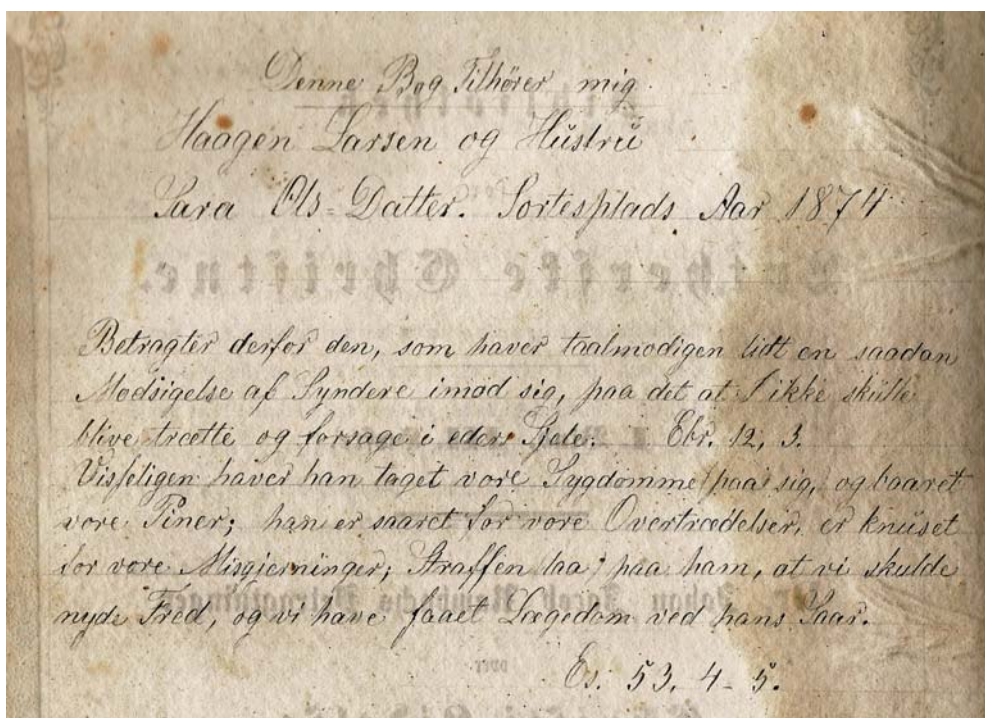 Denne Bog Tilhörer mig.
Haagen Larsen og Hüstrü
Sara Ols=Datter. Sortesplads Aar 1874
Betragter derfor den, som haver taalmodigen lidt en saadan
Modsigelse af Syndere imod sig, paa det at I ikke skülle
blive trætte og forsage i eders Sjele. Ebr. 12, 3.
Visseligen haver han taget vore Sygdomme paa sig, og baaret
vore Piner; han er saaret for vore Overtrædelser, er knüset
for vore Misgjerninger; Straffen laa paa ham, at vi skulde
nyde Fred, og vi have faaet Lægedom ved hans Saar.
Es. 53, 4-5.